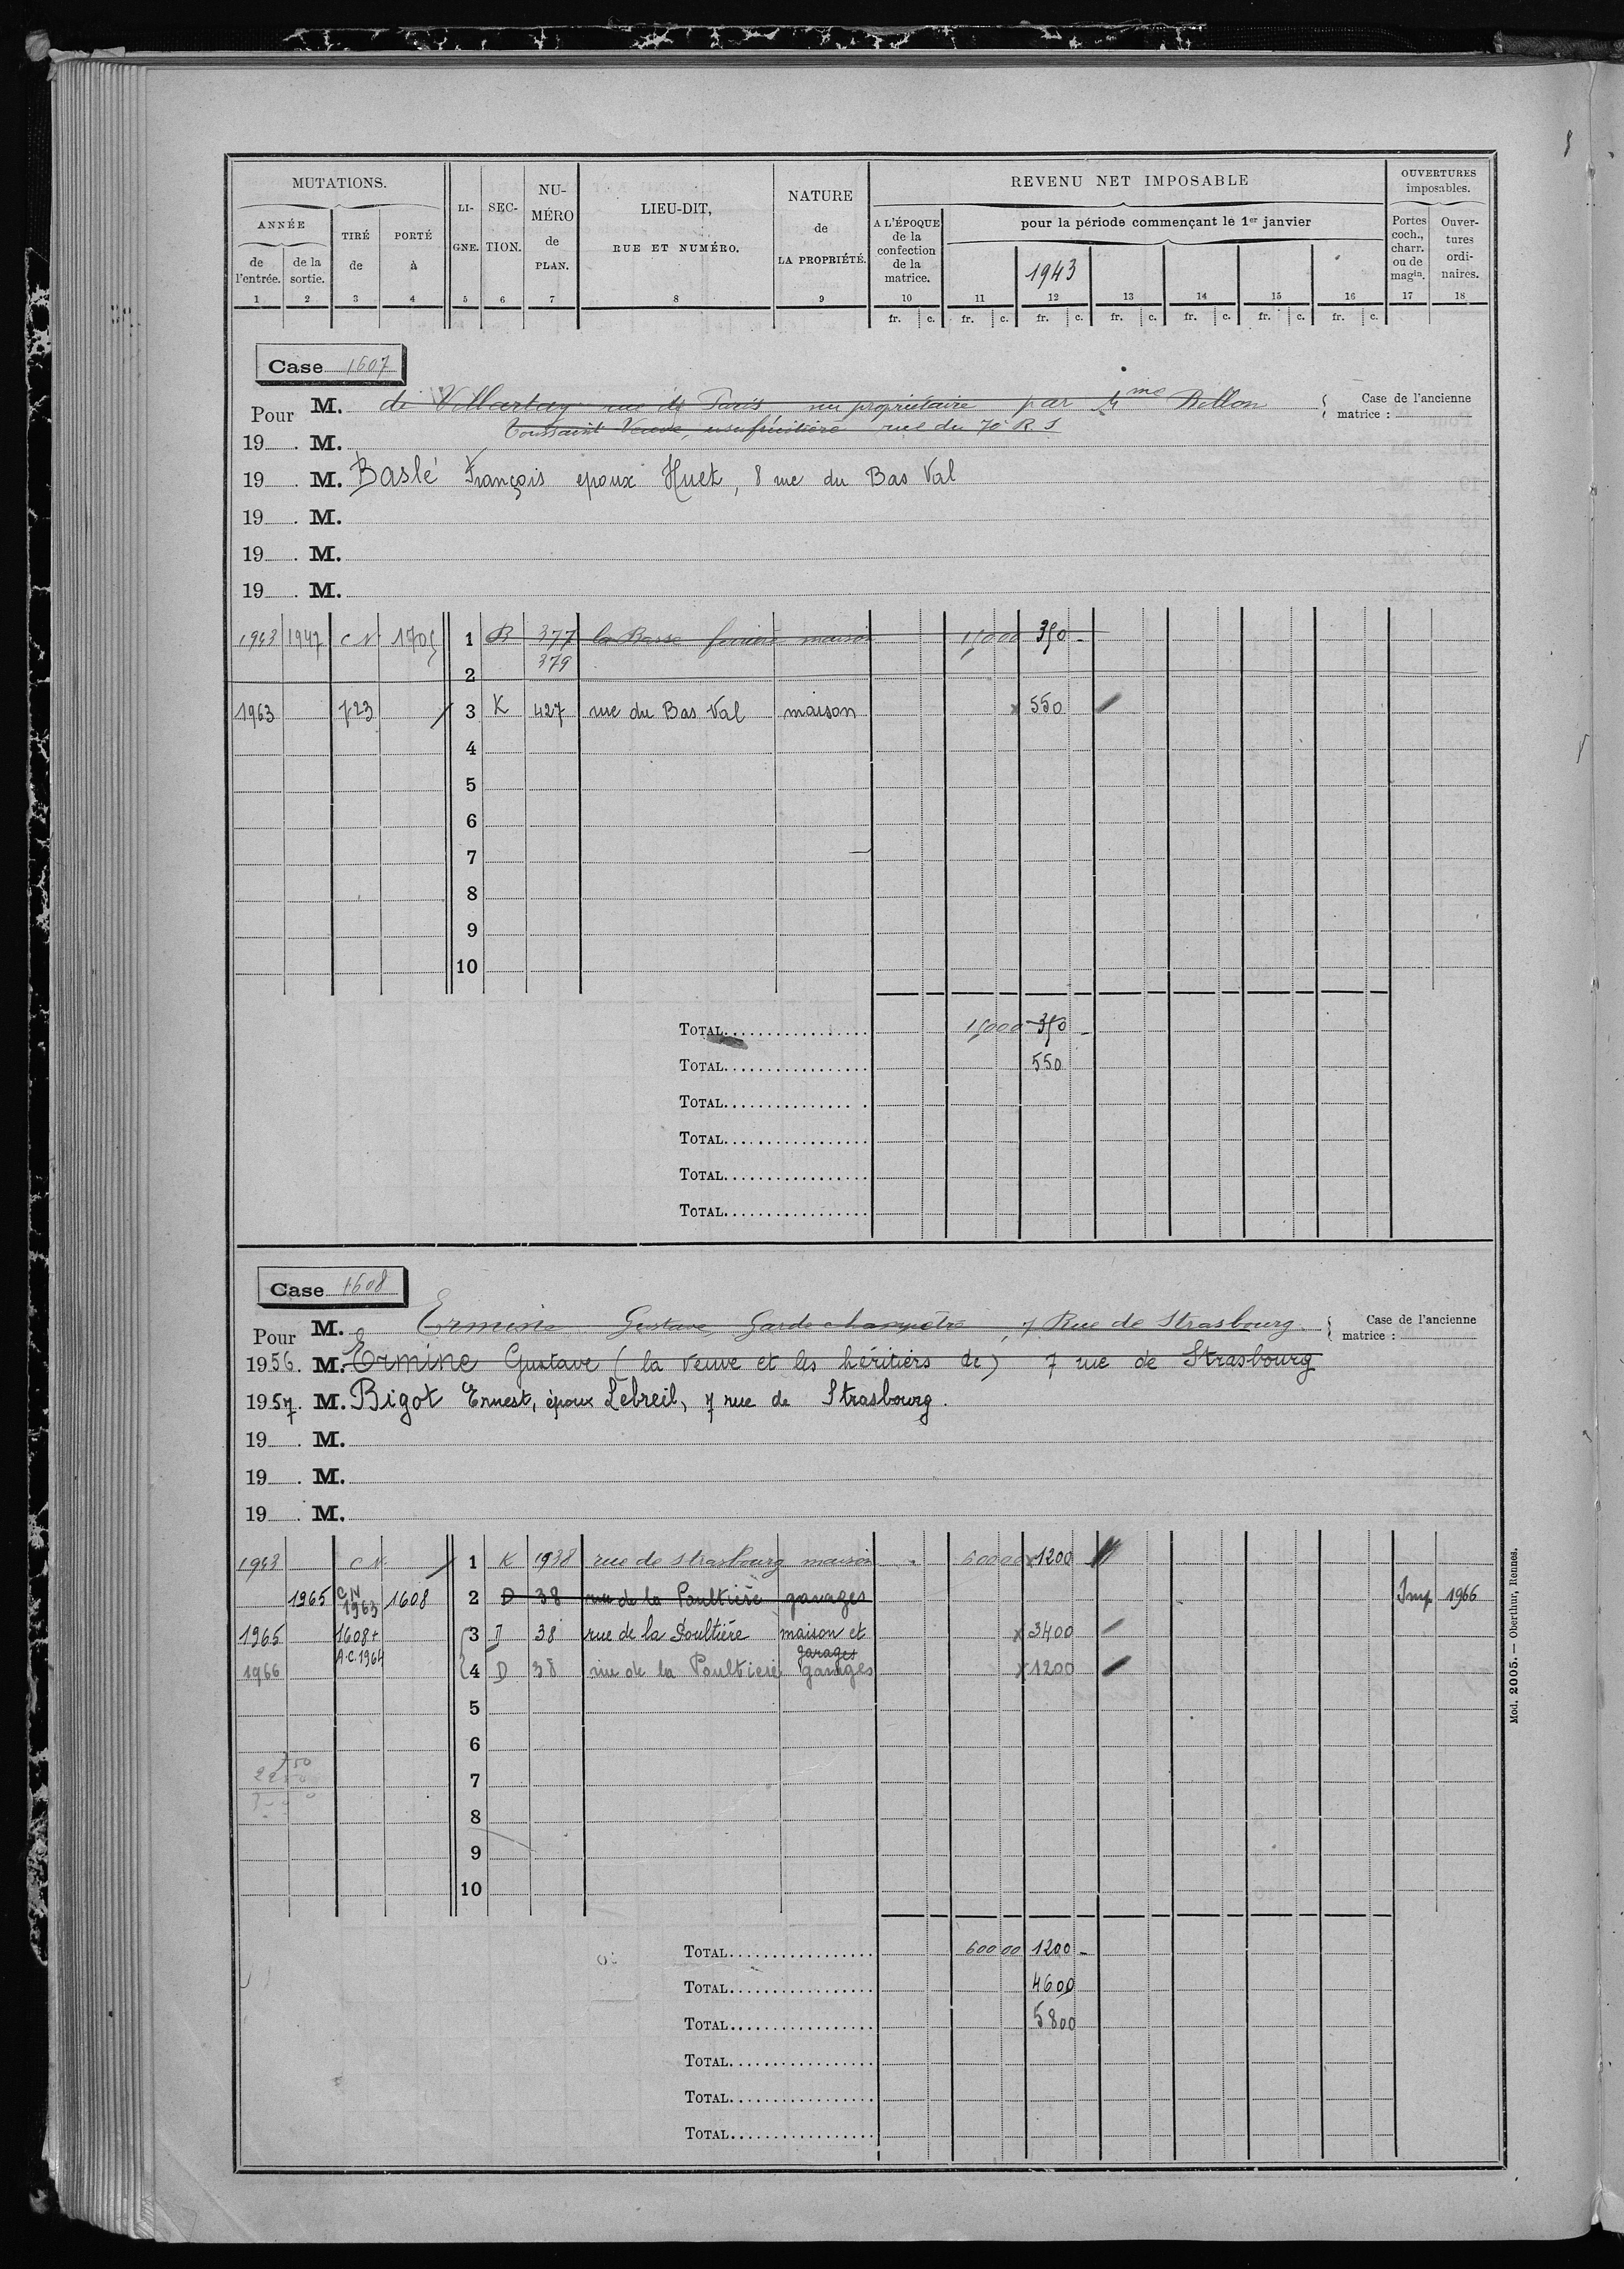 MUTATIONS. LI-GNE. SEC-TION. NU-MÉRO de PLAN. LIEU-DIT, RUE ET NUMÉRO. NATURE de LA PROPRIÉTÉ. REVENU NET IMPOSABLE OUVERTURES imposables.
ANNÉE TIRÉ de PORTÉ à A L'ÉPOQUE de la confection de la matrice. pour la période commençant le 1er janvier Portes coch., charr. ou de magin. Ouver-tures ordi-naires.
de l'entrée. de la sortie. 1943
1 2 3 4 5 6 7 8 9 10 11 12 13 14 15 16 17 18
fr. c. fr. c. fr. c. fr. c. fr. c. fr. c. fr. c.
Case 1607
Pour M. de Villartay rue de Paris nu propriétaire par Mme Bellon Case de l'ancienne matrice :
Toussaint Veuve, usufruitière rue du 70e R.I
19 . M.
19 . M. Baslé François époux Huet, 8 rue du Bas Val
19 . M.
19 . M.
19 . M.
1943 1947 C N 1705 1 B 377 la Basse maison 15000 350 -
2 379
1963 723 3 K 427 rue du Bas Val maison x 550
4
5
6
7
8
9
10
TOTAL 15000 350 -
TOTAL 550
TOTAL
TOTAL
TOTAL
TOTAL
Case 1608
Pour M. Ermine Gustave, Garde champêtre, 7 Rue de Strasbourg. Case de l'ancienne matrice :
1956. M. Ermine Gustave (la veuve et les héritiers de) 7 rue de Strasbourg
1957. M. Bigot Ernest, époux Lebreil, 7 rue de Strasbourg.
19 . M.
19 . M.
19 . M.
1943 C N. 1 K 1938 rue de Strasbourg maison 600 00 x 1200
1965 C N 1963 1608 2 D 38 rue de la Paultière garages Imp 1966
1965 1608 + A.C. 1964 3 D 38 rue de la Poultière maison et garages x 3400
1966 4 D 38 rue de la Paultière garages x 1200
5
6
7
8
9
10
TOTAL 600 00 1200 -
TOTAL 4600
TOTAL 5800
TOTAL
TOTAL
TOTAL
Mod. 2005. — Oberthur, Rennes.